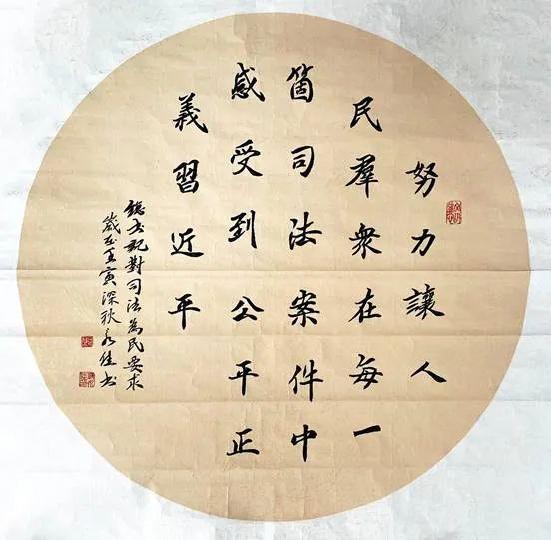 努力讓人
民羣衆在每一
箇司法案件中
感受到公平正
義習近平
總書記對司法為民要求
歲在壬寅深秋永佳書